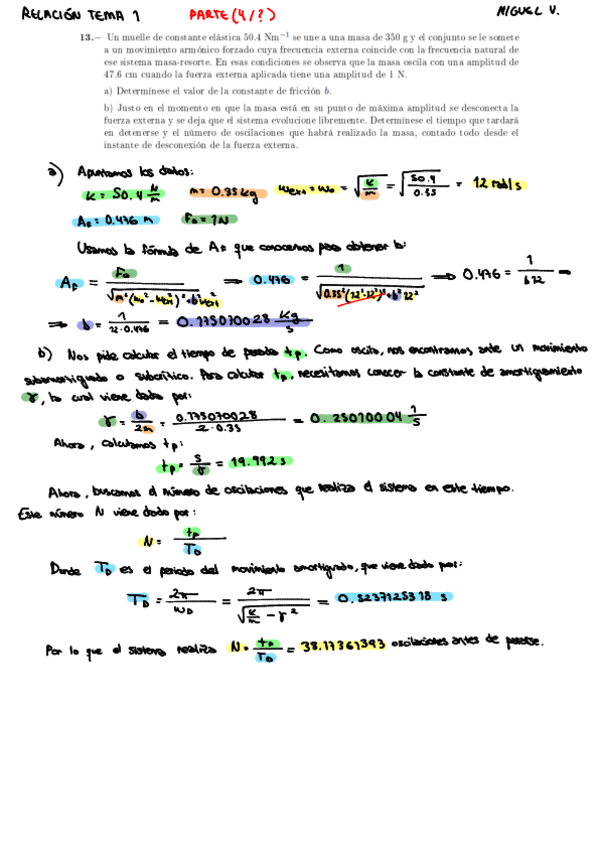 RELACIÓN TEMA 1 PARTE (4/?) MIGUEL V.
13.– Un muelle de constante elástica 50.4 Nm⁻¹ se une a una masa de 350 g y el conjunto se le somete
a un movimiento armónico forzado cuya frecuencia externa coincide con la frecuencia natural de
ese sistema masa-resorte. En esas condiciones se observa que la masa oscila con una amplitud de
47.6 cm cuando la fuerza externa aplicada tiene una amplitud de 1 N.
a) Determínese el valor de la constante de fricción b.
b) Justo en el momento en que la masa está en su punto de máxima amplitud se desconecta la
fuerza externa y se deja que el sistema evolucione libremente. Determínese el tiempo que tardará
en detenerse y el número de oscilaciones que habrá realizado la masa, contado todo desde el
instante de desconexión de la fuerza externa.
a) Apuntamos los datos:
k = 50.4 N/m m = 0.35 kg ωext = ω0 = √(k/m) = √(50.4/0.35) = 12 rad/s
AF = 0.476 m F0 = 1N
Usamos la fórmula de AF que conocemos para obtener b:
AF = F0/√(m²(ω0² - ωext²)² + b²ωext²) ⟹ 0.476 = 1/√(0.35²(12²-12²)² + b²12²) ⟹ 0.476 = 1/(b12) ⟹
⟹ b = 1/(12·0.476) = 0.175070028 kg/s
b) Nos pide calcular el tiempo de parada tp. Como oscila, nos encontramos ante un movimiento
subamortiguado o subcrítico. Para calcular tp, necesitamos conocer la constante de amortiguamiento
γ, la cual viene dada por:
γ = b/2m = 0.175070028/(2·0.35) = 0.25010004 1/s
Ahora, calculamos tp:
tp = 5/γ = 19.992 s
Ahora, buscamos el número de oscilaciones que realiza el sistema en este tiempo.
Este número N viene dado por:
N = tp/TD
Donde TD es el periodo del movimiento amortiguado, que viene dado por:
TD = 2π/ωD = 2π/√(k/m - γ²) = 0.5237125318 s
Por lo que el sistema realiza N = tp/TD = 38.17361393 oscilaciones antes de pararse.